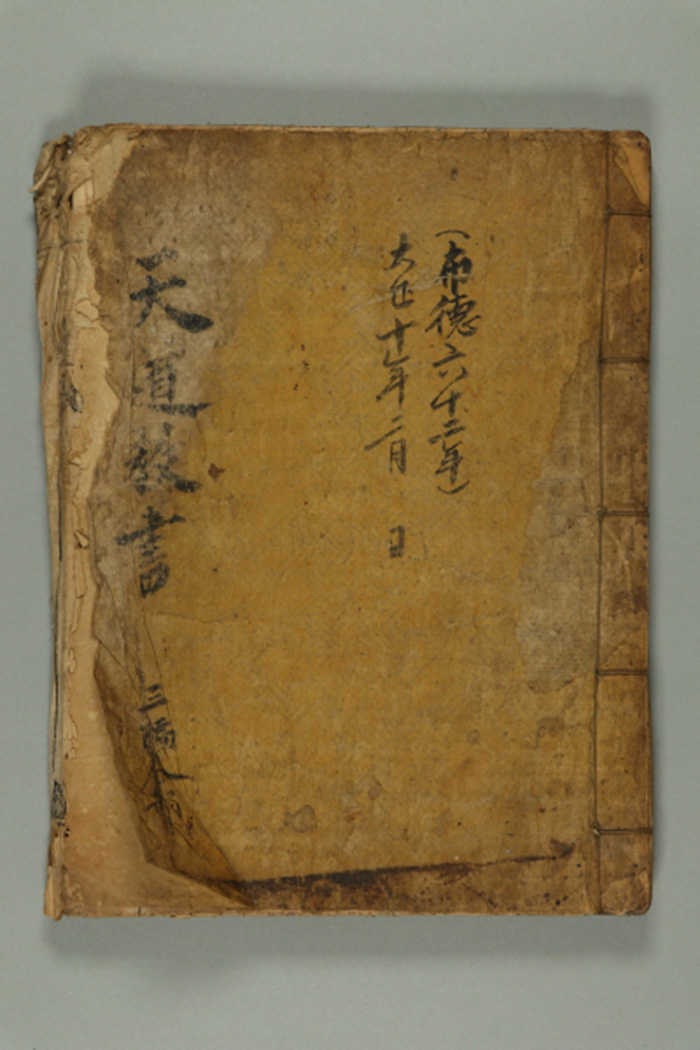 (布德六十二年)
大正十年二月 日
天道敎書